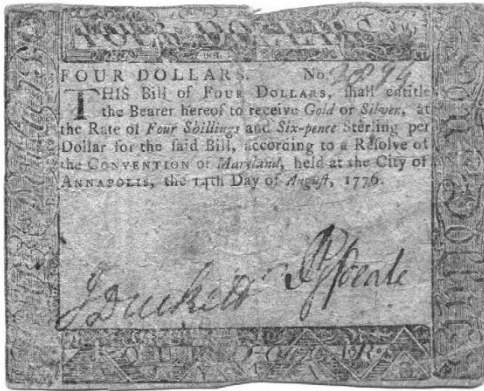 FOUR DOLLARS. No. 9894
THIS Bill of FOUR DOLLARS, ſhall entitle
the Bearer hereof to receive Gold or Silver, at
the Rate of Four Shillings and Six-pence Sterling per
Dollar for the ſaid Bill, according to a Reſolve of
the CONVENTION of Maryland, held at the City of
ANNAPOLIS, the 14th Day of Auguſt, 1776.
J Duckett
FOUR DOLLARS